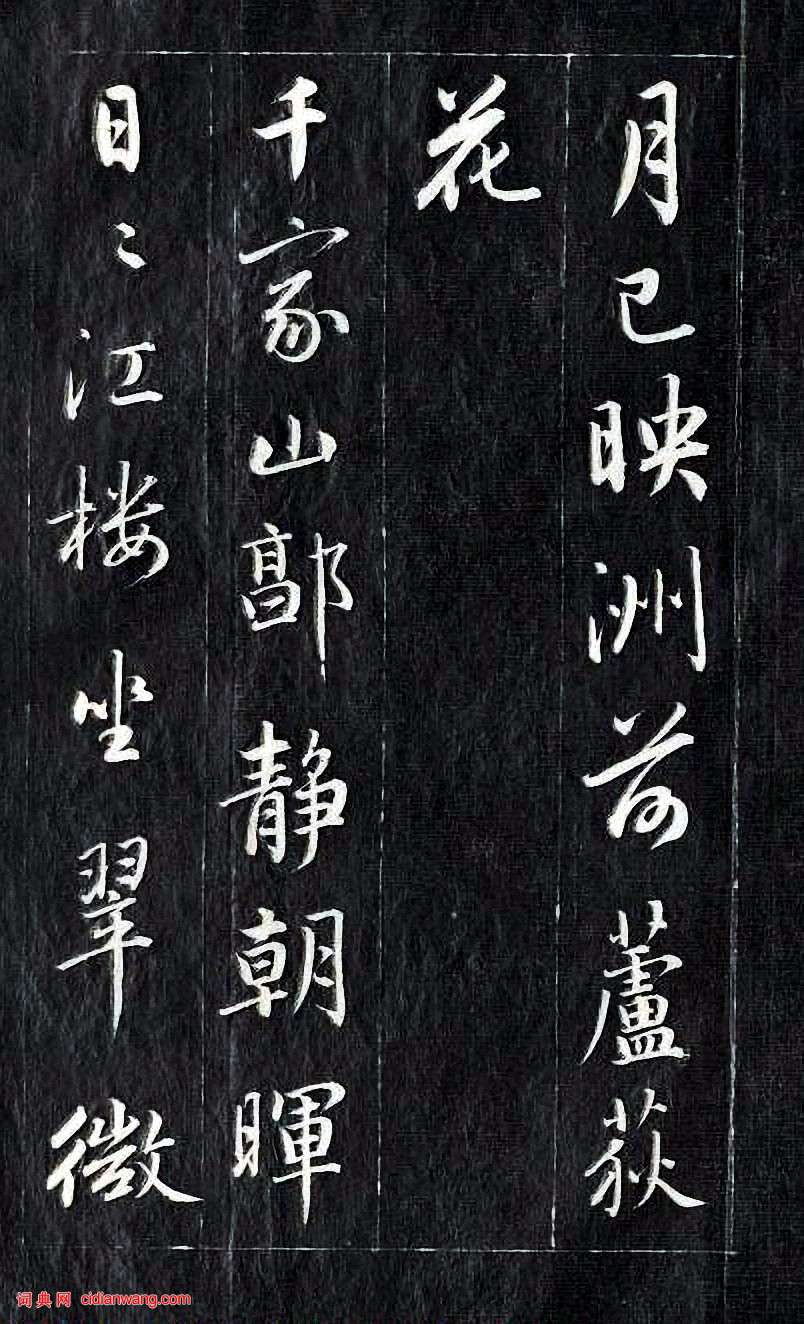 月已映洲前蘆荻
花
千家山郭静朝暉
日〻江楼坐翠微
词典网 cidianwang.com